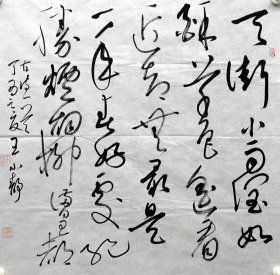 天街小雨润如
酥草色遥看
近却无最是
一年春好处绝
胜烟柳满皇都
古诗一首
丁酉之夏王小静